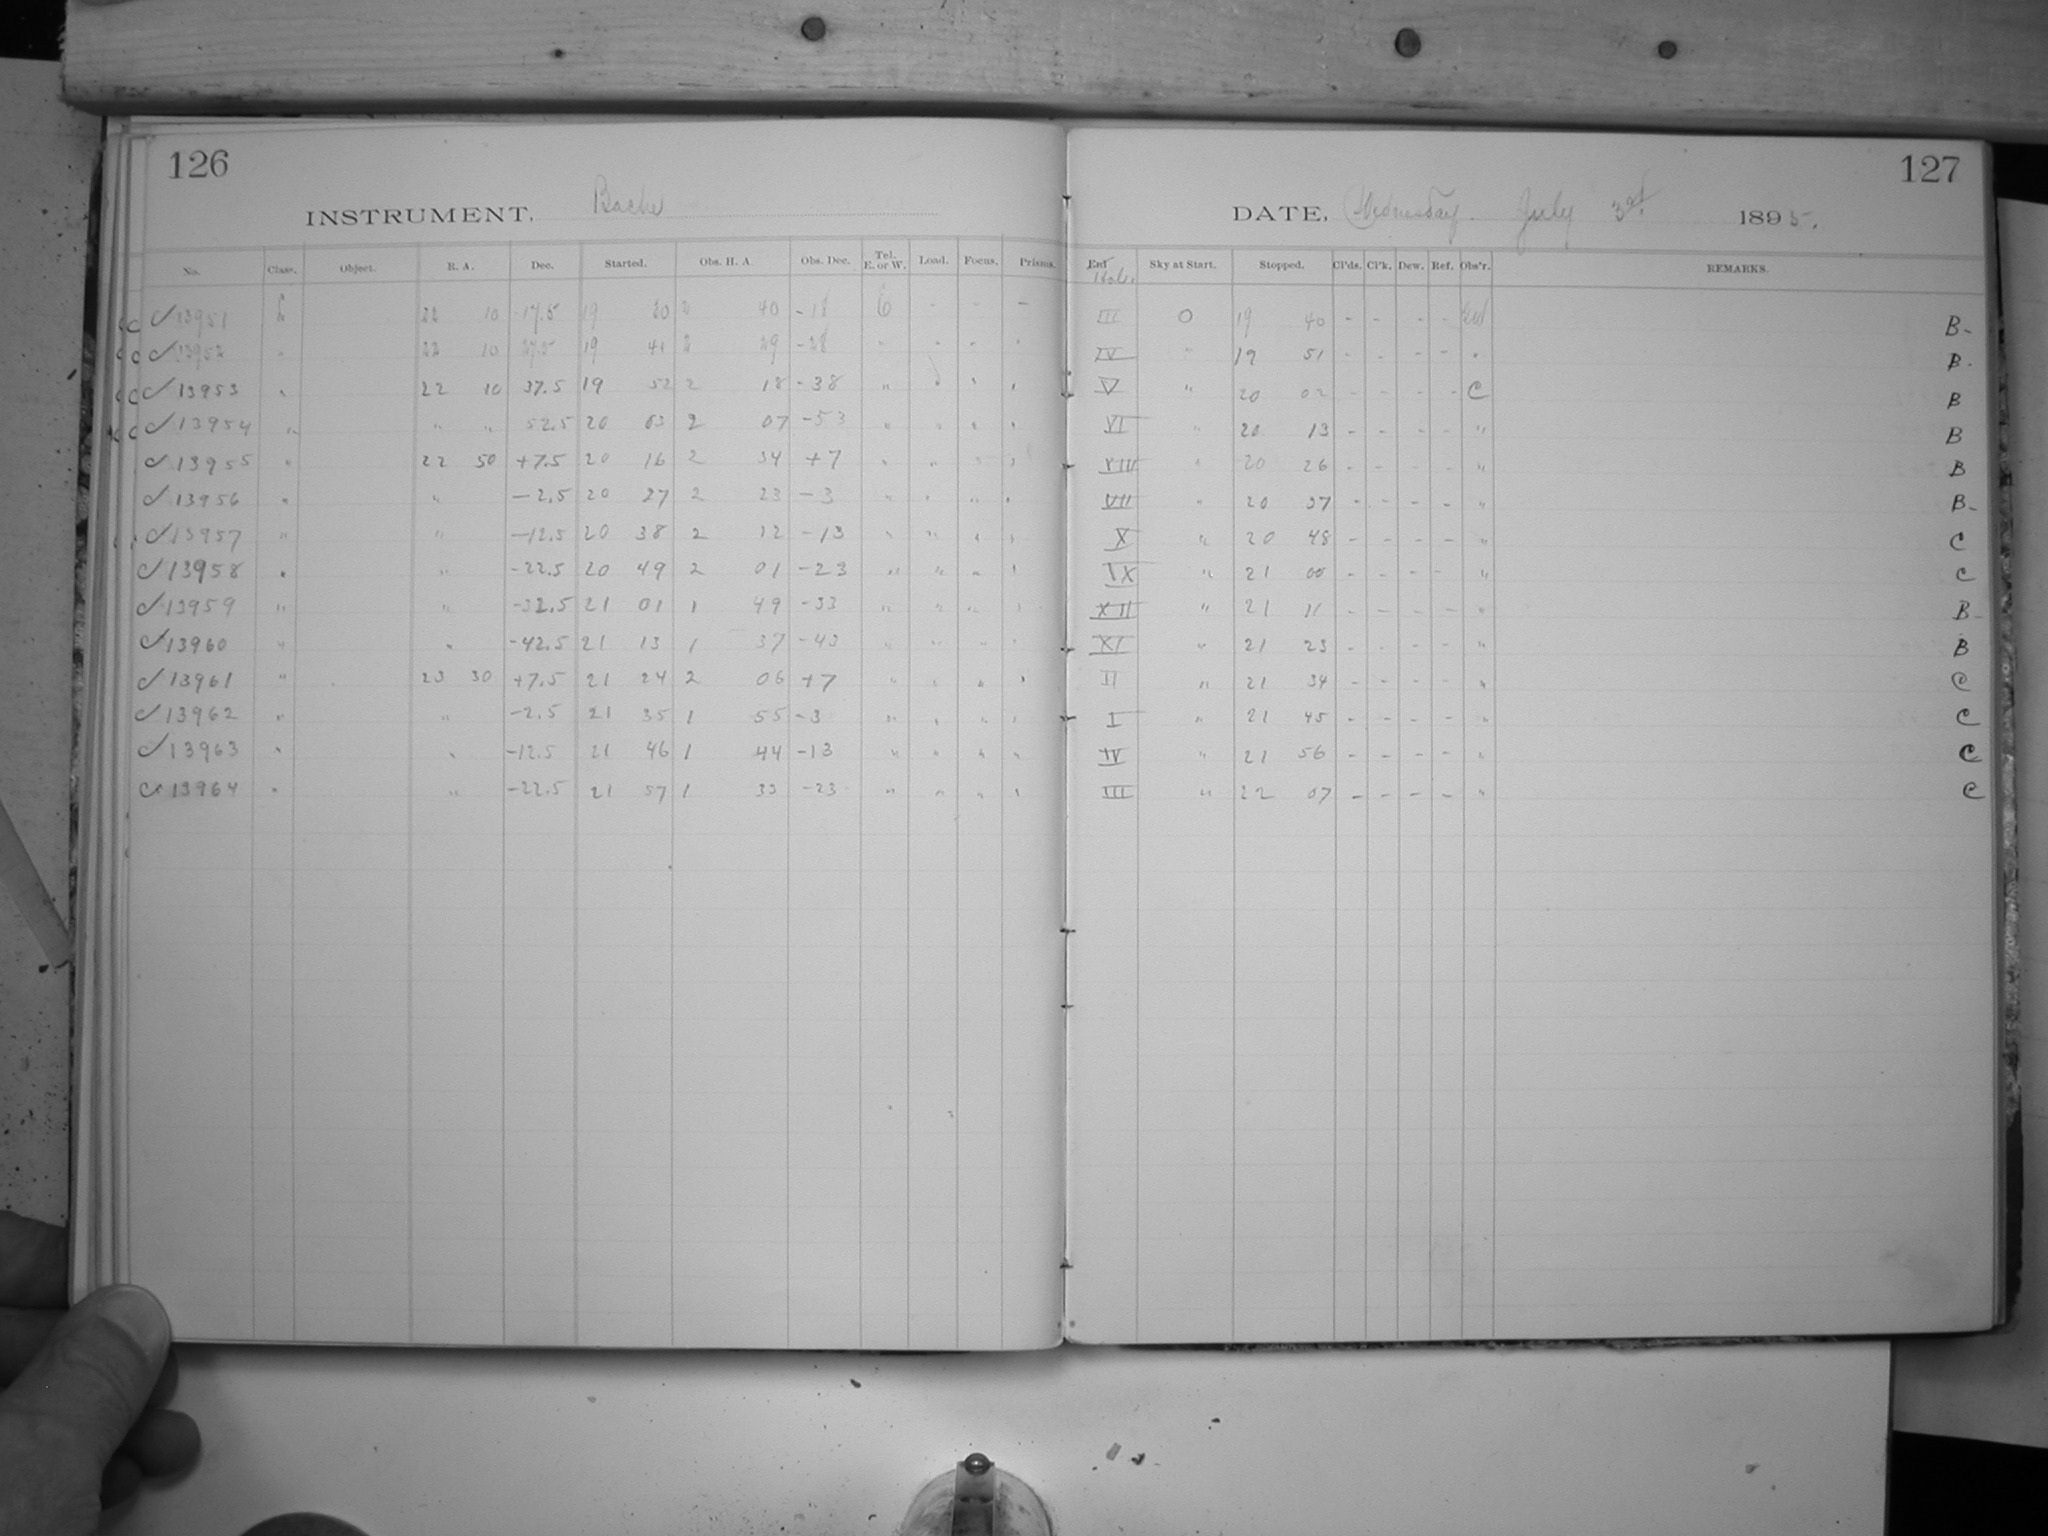 126
INSTRUMENT, Bache
No. Class. Object. R. A. Dec. Started. Obs. H. A. Obs. Dec. Tel. E. or W. Load. Focus. Prisms.
13951 22 10 -17.5 19 30 2 40 -18 - - -
13952 " 22 10 27.5 19 41 2 29 -28 " " " "
13953 " 22 10 37.5 19 52 2 18 -38 " " " "
13954 " " " 52.5 20 03 2 07 -53 " " " "
13955 " 22 50 +7.5 20 16 2 34 +7 " " " "
13956 " " -2.5 20 27 2 23 -3 " " " "
13957 " " -12.5 20 38 2 12 -13 " " " "
13958 " " -22.5 20 49 2 01 -23 " " " "
13959 " " -32.5 21 01 1 49 -33 " " " "
13960 " " -42.5 21 13 1 37 -43 " " " "
13961 " 23 30 +7.5 21 24 2 06 +7 " " " "
13962 " " -2.5 21 35 1 55 -3 " " " "
13963 " " -12.5 21 46 1 44 -13 " " " "
13964 " " -22.5 21 57 1 33 -23 " " " "
127
DATE, Wednesday July 3rd 1895.
Sky at Start. Stopped. Cl'ds. Cl'k. Dew. Ref. Obs'r. REMARKS.
III O 19 40 - - - - B-
IV " 19 51 - - - - " B-
V " 20 02 - - - - C B
VI " 20 13 - - - - " B
VIII " 20 26 - - - - " B
VII " 20 37 - - - - " B-
X " 20 48 - - - - " C
IX " 21 00 - - - - " C
XII " 21 11 - - - - " B-
XI " 21 23 - - - - " B
II " 21 34 - - - - " C
I " 21 45 - - - - " C
IV " 21 56 - - - - " C
III " 22 07 - - - - " C